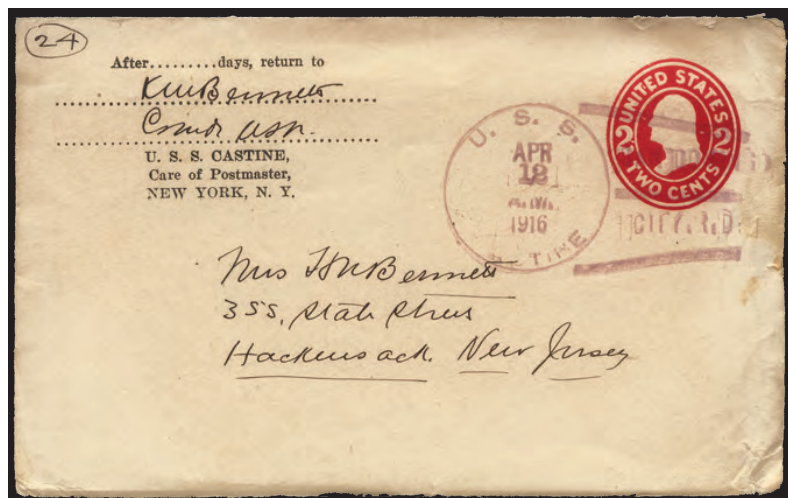 24
After.........days, return to
K M Bennett
Comdr USN.
U. S. S. CASTINE,
Care of Postmaster,
NEW YORK, N. Y.
U. S. S.
APR
12
A.M.
1916
TINE
UNITED STATES
2 2
TWO CENTS
CITY. R.D.
Mrs K M Bennett
355, State Street
Hackensack. New Jersey